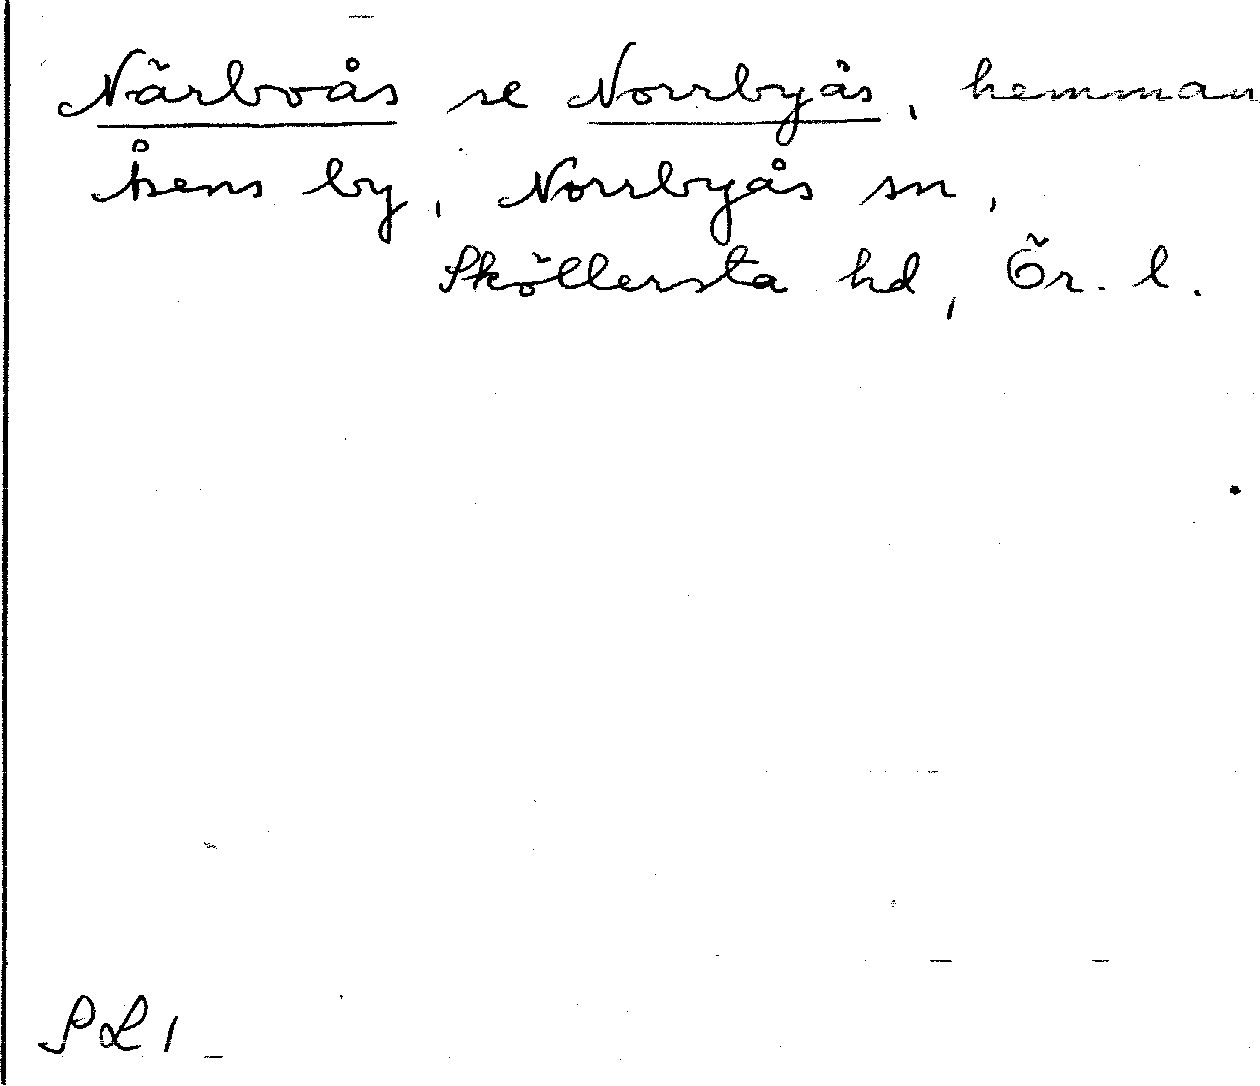 Närboås se Norrbyås, hemman
Åsens by, Norrbyås sn,
Sköllersta hd, Ör. l.